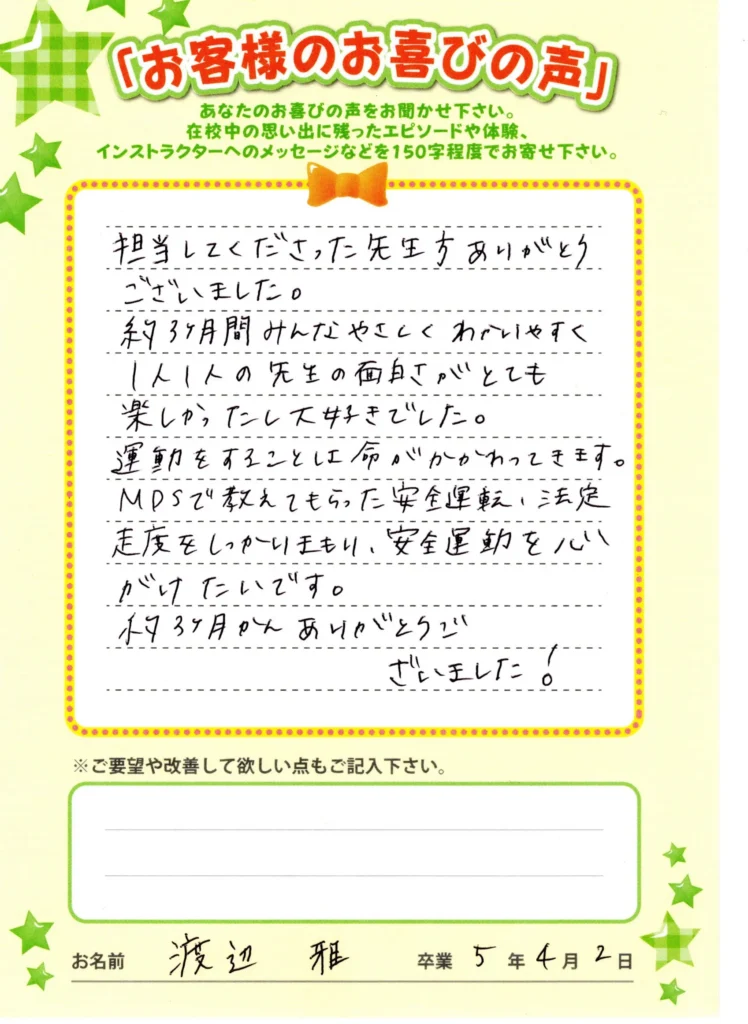 「お客様のお喜びの声」
あなたのお喜びの声をお聞かせ下さい。
在校中の思い出に残ったエピソードや体験、
インストラクターへのメッセージなどを150字程度でお寄せ下さい。
担当してくださった先生方ありがとう
ございました。
約3ヶ月間みんなやさしくわかりやすく
1人1人の先生の面白さがとても
楽しかったし大好きでした。
運動をすることは命がかかわってきます。
MDSで教えてもらった安全運転、法定
走度をしっかりまもり、安全運動を心
がけたいです。
約3ヶ月かんありがとうご
ざいました!
※ご要望や改善して欲しい点もご記入下さい。
お名前 渡辺 雅 卒業 5 年 4 月 2 日